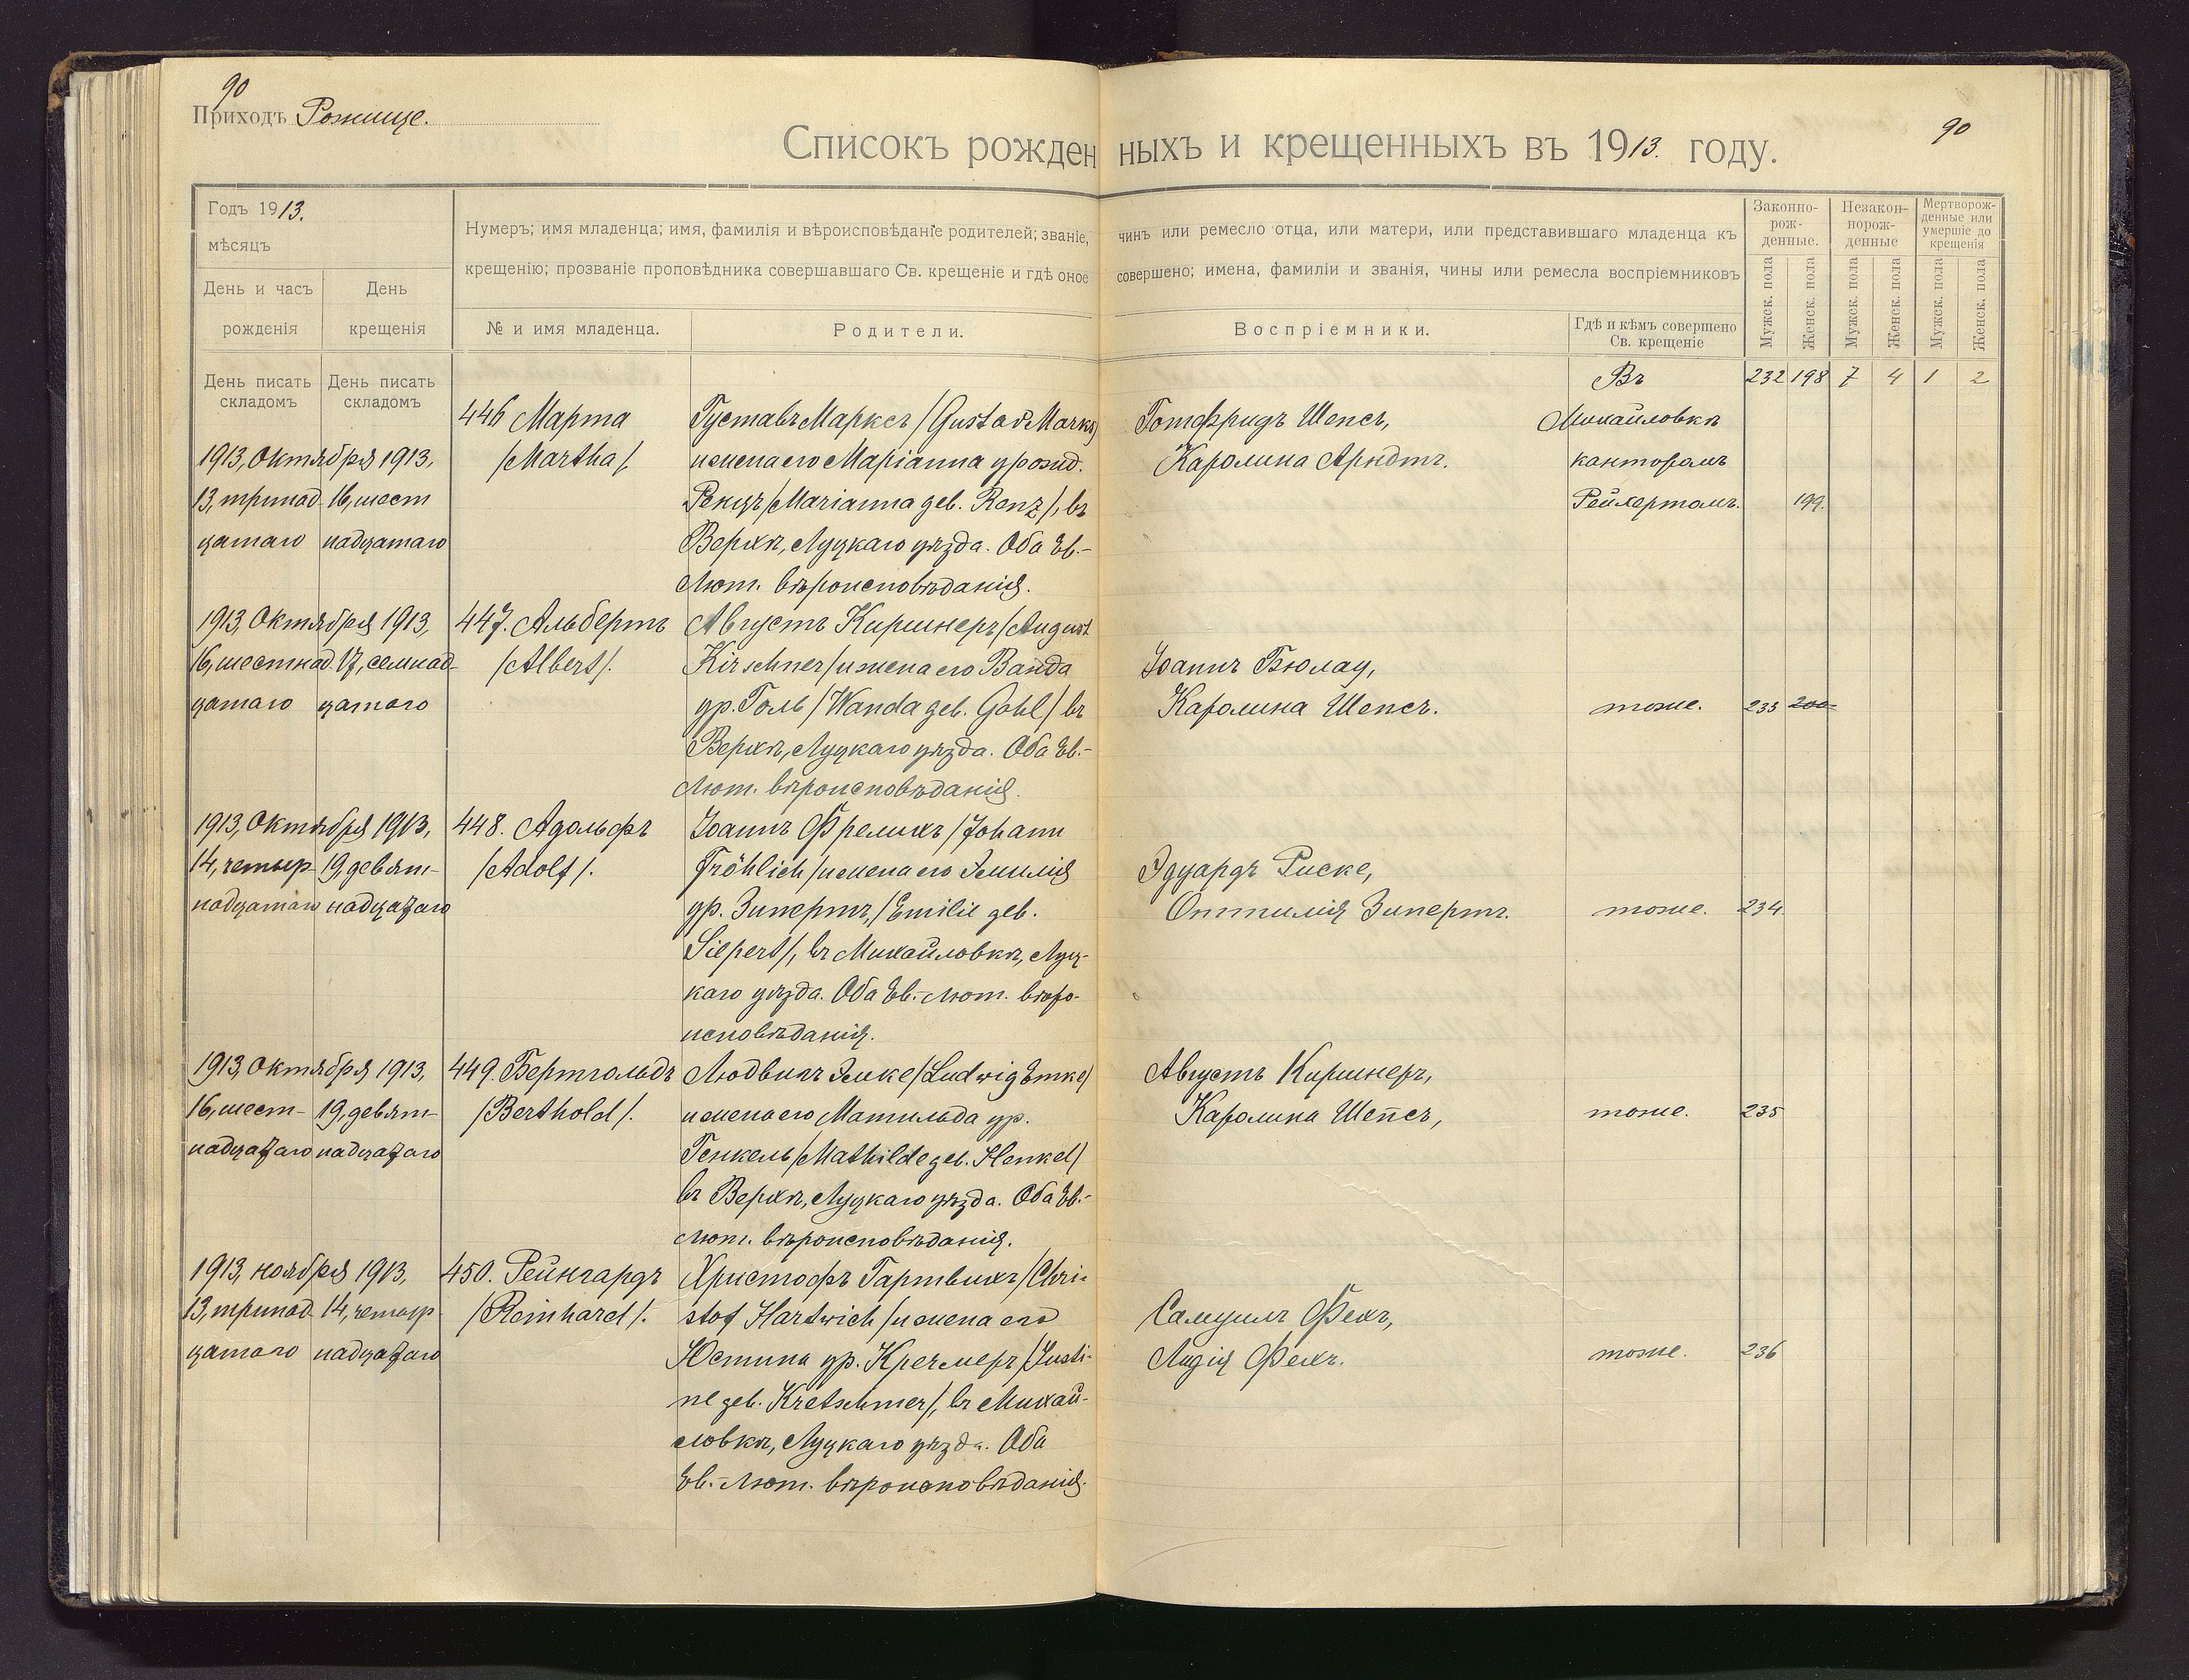 90
Приходъ Рожище.
90
Списокъ рожденныхъ и крещенныхъ въ 1913. году.
Годъ 1913.
мѣсяцъ
День и часъ рожденія
День крещенія
Нумеръ; имя младенца; имя, фамилія и вѣроисповѣданіе родителей; званіе, чинъ или ремесло отца, или матери, или представившаго младенца къ
крещенію; прозваніе проповѣдника совершавшаго Св. крещеніе и гдѣ оное совершено; имена, фамиліи и званія, чины или ремесла воспріемниковъ
№ и имя младенца.
Родители.
Воспріемники.
Гдѣ и кѣмъ совершено
Св. крещеніе
Законно-
рож-
денные.
Незакон-
норож-
денные
Мертворож-
денные или
умершіе до
крещенія
Мужск. пола
Женск. пола
Мужск. пола
Женск. пола
Мужск. пола
Женск. пола
День писать
складомъ
День писать
складомъ
232 198 7 4 1 2
1913, Октября 1913,
13, тринад- 16, шест
цатаго надцатаго
446 Марта
/Martha/.
Густавъ Марксъ /Gustav Marks/
и жена его Маріанна урожд.
Ренцъ /Marianna geb. Renz/, въ
Верхѣ, Луцкаго уѣзда. Оба Ев.-
Лют. вѣроисповѣданія.
Готфридъ Шепсъ,
Каролина Арндтъ.
Въ
Михайловкѣ
канторомъ
Рейхертомъ.
199.
1913, Октября 1913,
16, шестнад- 17, семнад-
цатаго цатаго
447. Альбертъ
/Albert/.
Августъ Киршнеръ /August
Kirschner/ и жена его Ванда
ур. Голь /Wanda geb. Gohl/ въ
Верхѣ, Луцкаго уѣзда. Оба Ев.-
Лют. вѣроисповѣданія.
Іоаннъ Бюлау,
Каролина Шепсъ.
тоже.
233 200
1913, Октября 1913,
14, четыр- 19, девят-
надцатаго надцатаго
448. Адольфъ
/Adolf/.
Іоаннъ Фрелихъ /Johann
Fröhlich/ и жена его Эмилія
ур. Зипертъ, /Emilie geb.
Siepert/, въ Михайловкѣ, Луц-
каго уѣзда. Оба Ев.-Лют. вѣро-
исповѣданія.
Эдуардъ Риске,
Оттилія Зипертъ.
тоже.
234
1913, Октября 1913,
16, шест- 19, девят-
надцатаго надцатаго
449. Бертгольдъ
/Berthold/.
Людвигъ Эмке /Ludwig Emke/
и жена его Матильда ур.
Генкель /Mathilde geb. Henkel/
въ Верхѣ, Луцкаго уѣзда. Оба Ев.-
Лют. вѣроисповѣданія.
Августъ Киршнеръ,
Каролина Шепсъ,
тоже.
235
1913, ноября 1913,
13, тринад- 14, четыр-
цатаго надцатаго
450. Рейнгардъ
/Reinhard/.
Христофъ Гартвихъ /Chri-
stof Hartwich/ и жена его
Юстина ур. Кречмеръ /Justi-
ne geb. Kretschmer/, въ Михай-
ловкѣ, Луцкаго уѣзда. Оба
Ев.-Лют. вѣроисповѣданія.
Самуилъ Фехъ,
Лидія Фехъ.
тоже.
236